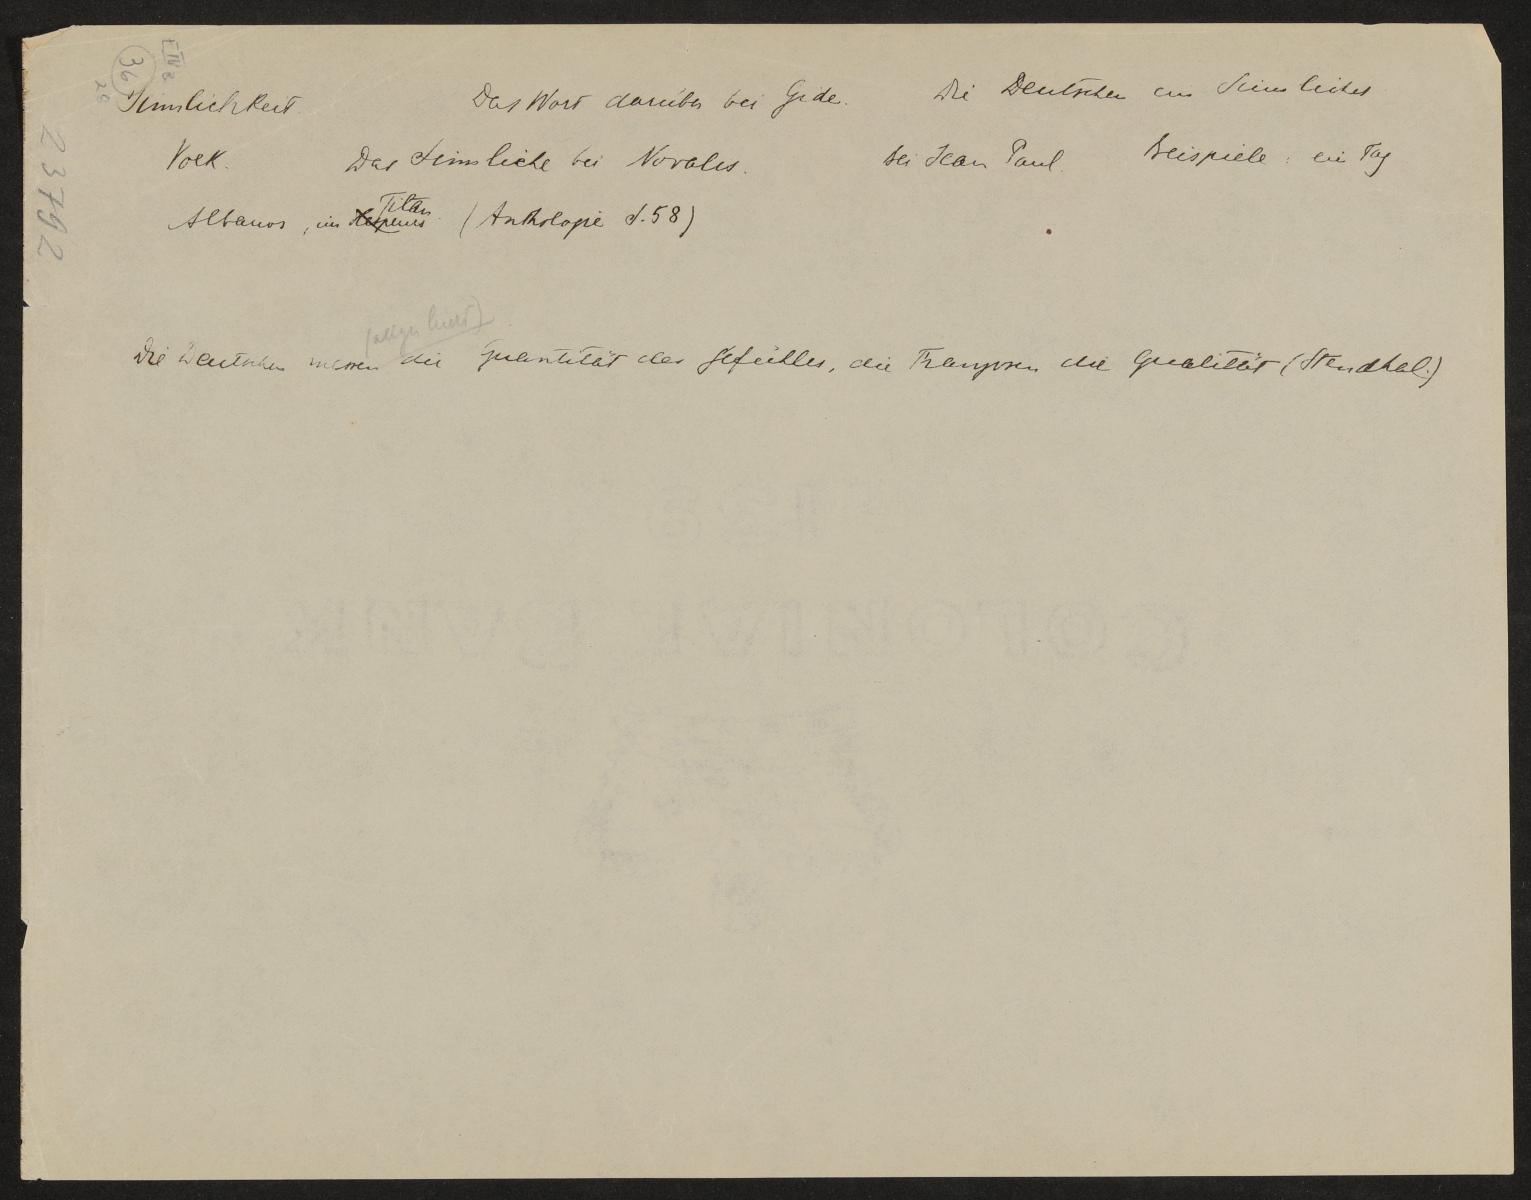 IV 2
36
26
23792
Sinnlichkeit. Das Wort darüber bei Gide. Die Deutschen ein Sinnliches
Volk. Das Sinnliche bei Novalis. bei Jean Paul. Beispiele: ein Tag
Titan
Albanos, im Hesperus (Anthologie S. 58)
Die Deutschen messen die Quantität des Gefühles, die Franzosen die Qualität (Stendhal.)
COLONIAL BANK